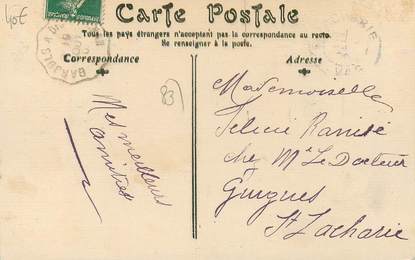 40€
Carte Postale
Tous les pays étrangers n'acceptant pas la correspondance au recto.
Se renseigner à la poste.
Correspondance
Adresse
83
Mes meilleurs
amitiés
Mademoiselle
Félicie
chez Mr Le Docteur
Guigues
St Zacharie
BARJOLS A